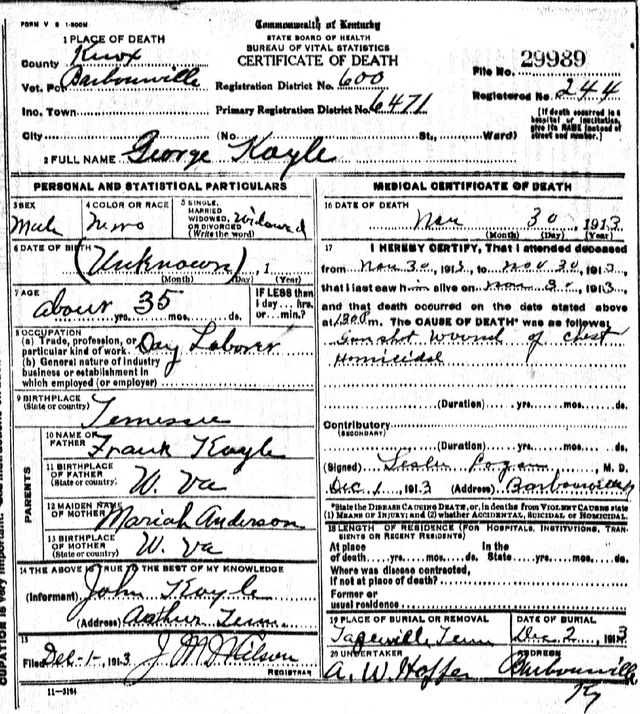 FORM V S 1-500M.
Commonwealth of Kentucky
STATE BOARD OF HEALTH
BUREAU OF VITAL STATISTICS
CERTIFICATE OF DEATH
1 PLACE OF DEATH
County Knox
Vot. Pct Barbourville
Inc. Town
City (No. St., Ward)
Registration District No. 600
Primary Registration District No. 6471
File No. 29989
Registered No. 244
(If death occurred in a
hospital or institution,
give its NAME instead of
street and number.)
2 FULL NAME George Kayle
PERSONAL AND STATISTICAL PARTICULARS
3 SEX
Male
4 COLOR OR RACE
Negro
5 SINGLE,
MARRIED
WIDOWED,
OR DIVORCED
(Write the word)
Widowed
6 DATE OF BIRTH
(Unknown), 1
(Month) (Day) (Year)
7 AGE
about 35
yrs. mos. ds.
IF LESS than
1 day, hrs.
or min.?
8 OCCUPATION
(a) Trade, profession, or
particular kind of work. Day Laborer
(b) General nature of industry
business or establishment in
which employed (or employer)
9 BIRTHPLACE
(State or country)
Tennessee
PARENTS
10 NAME OF
FATHER
Frank Kayle
11 BIRTHPLACE
OF FATHER
(State or country)
W. Va
12 MAIDEN NAME
OF MOTHER
Mariah Anderson
13 BIRTHPLACE
OF MOTHER
(State or country)
W. Va
14 THE ABOVE IS TRUE TO THE BEST OF MY KNOWLEDGE
(Informant) John Kayle
(Address) Arthur Tenn.
15
Filed Dec-1-, 1913 Wilson
REGISTRAR
11-3184
MEDICAL CERTIFICATE OF DEATH
16 DATE OF DEATH
Nov 30, 1913
(Month) (Day) (Year)
17 I HEREBY CERTIFY, That I attended deceased
from Nov 30, 1913, to Nov 30, 1913,
that I last saw him alive on Nov 30, 1913
and that death occurred on the date stated above
at m. The CAUSE OF DEATH* was as follows:
Gunshot Wound of chest
Homicidal
(Duration) yrs. mos. ds.
Contributory
(SECONDARY)
(Duration) yrs. mos. ds.
(Signed) Leslie Logan, M. D.
Dec 1, 1913 (Address) Barbourville
*State the DISEASE CAUSING DEATH, or, in deaths from VIOLENT CAUSES state
(1) MEANS OF INJURY; and (2) whether ACCIDENTAL, SUICIDAL or HOMICIDAL.
18 LENGTH OF RESIDENCE (FOR HOSPITALS, INSTITUTIONS, TRANSIENTS OR RECENT RESIDENTS)
At place
of death yrs. mos. ds.
In the
State yrs. mos. ds.
Where was disease contracted,
if not at place of death?
Former or
usual residence
19 PLACE OF BURIAL OR REMOVAL
Tazewell, Tenn
DATE OF BURIAL
Dec 2, 1913
20 UNDERTAKER
A. W. Hoffer
ADDRESS
Barbourville
Ky